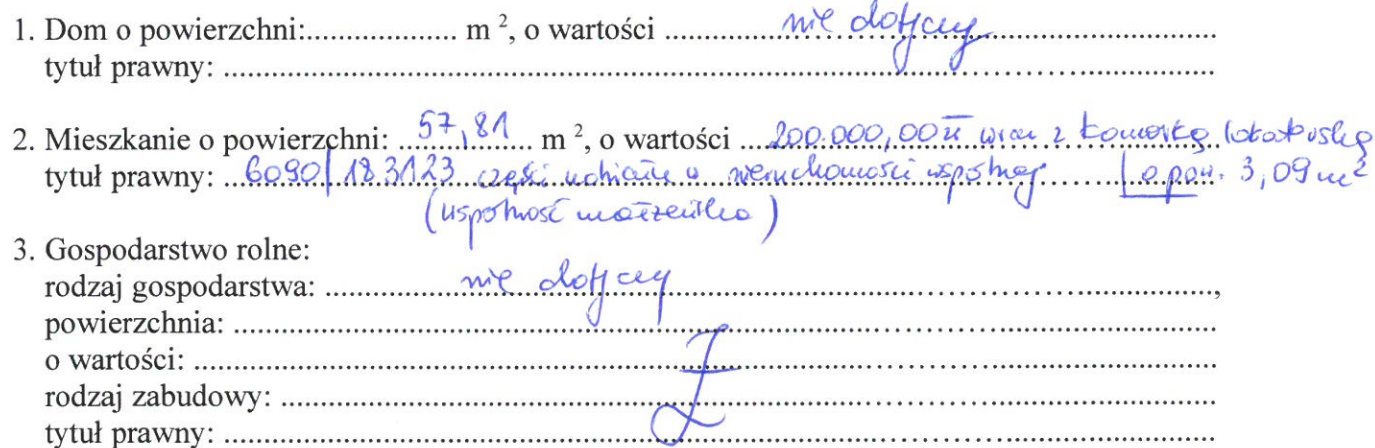 1. Dom o powierzchni:................... m ², o wartości ............nie dotyczy............................
tytuł prawny: ....................................................................................................
2. Mieszkanie o powierzchni: ..57,81.. m ², o wartości ...200.000,00 zł wraz z komórką lokatorską
tytuł prawny: ...6090/183123 części udziału w nieruchomości wspólnej....... o pow. 3,09 m²
(wspólność małżeńska)
3. Gospodarstwo rolne:
rodzaj gospodarstwa: ................nie dotyczy......................................................,
powierzchnia: ....................................................................................................
o wartości: ....................................................................................................
rodzaj zabudowy: ....................................................................................................
tytuł prawny: ....................................................................................................